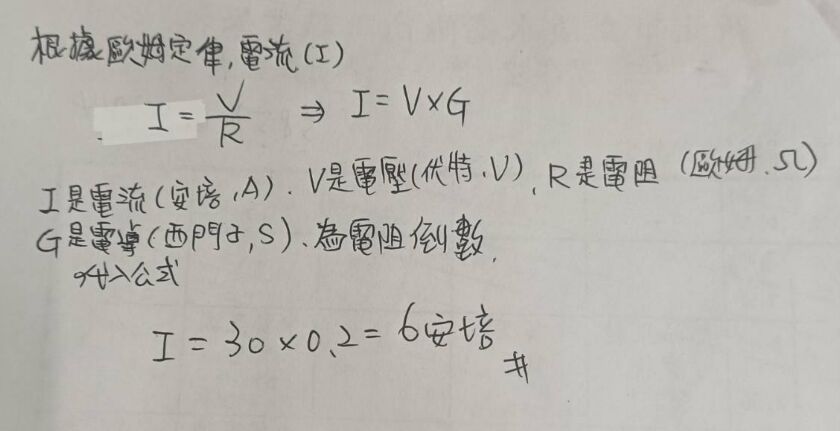 根據歐姆定律,電流(I)
I = V/R ⇒ I = V×G
I是電流(安培,A)、V是電壓(伏特、V)、R是電阻(歐姆、Ω)
G是電導(西門子,S)、為電阻倒數,
代入公式
I = 30×0.2 = 6安培 #